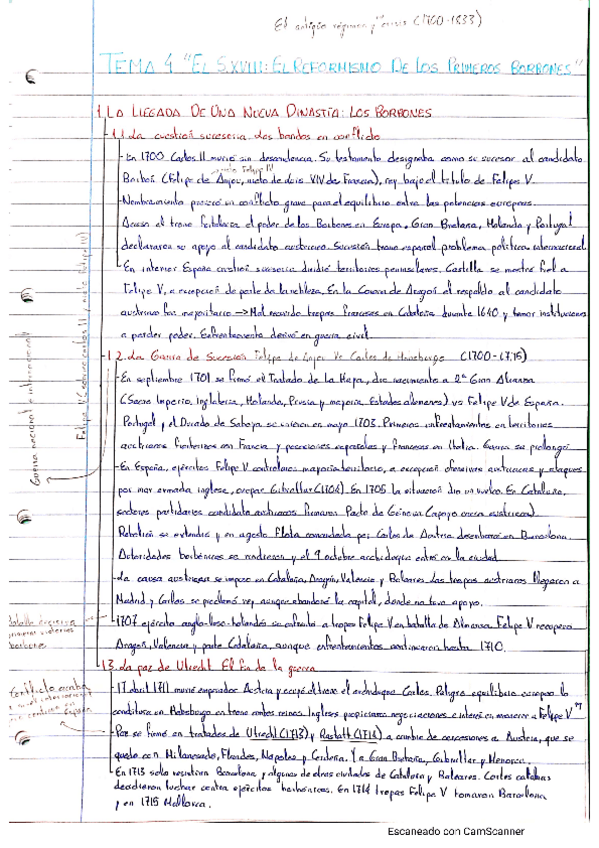 El antiguo régimen y crisis (1700-1833)
TEMA 4 "EL S.XVIII: EL REFORMISMO DE LOS PRIMEROS BORBONES"
1. LA LLEGADA DE UNA NUEVA DINASTÍA: LOS BORBONES
1.1. La cuestión sucesoria. dos bandos en conflicto
- En 1700 Carlos II murió sin descendencia. Su testamento designaba como su sucesor al candidato
Borbón (Felipe de Anjou, nieto de Luis XIV de Francia), rey bajo el título de Felipe V.
- Nombramiento provocó un conflicto grave para el equilibrio entre las potencias europeas.
Acceso al trono fortalecía el poder de los Borbones en Europa, Gran Bretaña, Holanda y Portugal
declararon su apoyo al candidato austriaco. Sucesión trono español problema política internacional
- En interior España cuestión sucesoria dividió territorios peninsulares. Castilla se mostró fiel a
Felipe V, a excepción de parte de la nobleza. En la Corona de Aragón el respaldo al candidato
austriaco fue mayoritario → Mal recuerdo tropas francesas en Cataluña durante 1640 y temor instituciones
a perder poder. Enfrentamiento derivó en guerra civil.
1.2. La Guerra de Sucesión Felipe de Anjou Vs Carlos de Habsburgo (1700-1715)
- En septiembre 1701 se firmó el Tratado de la Haya, dio nacimiento a 2ª Gran Alianza
(Sacro Imperio, Inglaterra, Holanda, Prusia y mayoría Estados alemanes) vs Felipe V de España.
Portugal y el Ducado de Saboya se unieron en mayo 1703. Primeros enfrentamientos en territorios
austriacos fronterizos con Francia y posesiones españolas y francesas en Italia. Guerra se prolongó
- En España, ejércitos Felipe V controlaron mayoría territorio, a excepción ofensivas austriacas y ataques
por mar armada inglesa, ocupar Gibraltar (1704). En 1705 la situación dio un vuelco. En Cataluña,
sectores partidarios candidato austriaco firmaron Pacto de Génova (apoyo causa austriaca)
Rebelión se extendió y en agosto flota comandada por Carlos de Austria desembarcó en Barcelona
Autoridades borbónicas se rindieron y el 9 octubre archiduque entró en la ciudad
- La causa austriaca se impuso en Cataluña, Aragón, Valencia y Baleares. Las tropas austriacas llegaron a
Madrid y Carlos se proclamó rey aunque abandonó la capital, donde no tuvo apoyo.
- 1707 ejército anglo-luso-holandés se enfrentó a tropas Felipe V en batalla de Almansa. Felipe V recuperó
Aragón, Valencia y parte Cataluña, aunque enfrentamientos continuaron hasta 1710.
1.3. La paz de Utrecht. El fin de la guerra
- 17 abril 1711 murió emperador Austria y ocupó el trono el archiduque Carlos. Peligro equilibrio europeo lo
en Habsburgo en trono ambos reinos. Ingleses propiciaron negociaciones e reconocer a Felipe V
- Paz se firmó en tratados de Utrecht (1713) y Rastatt (1714) a cambio de concesiones a Austria, que se
quedó con Milanesado, Flandes, Nápoles y Cerdeña. Y a Gran Bretaña, Gibraltar y Menorca.
- En 1713 solo resistían Barcelona y algunas de otras ciudades de Cataluña y Baleares. Cortes catalanas
decidieron luchar contra ejércitos borbónicos. En 1714 tropas Felipe V tomaron Barcelona
y en 1715 Mallorca.
Guerra nacional e internacional
Escaneado con CamScanner